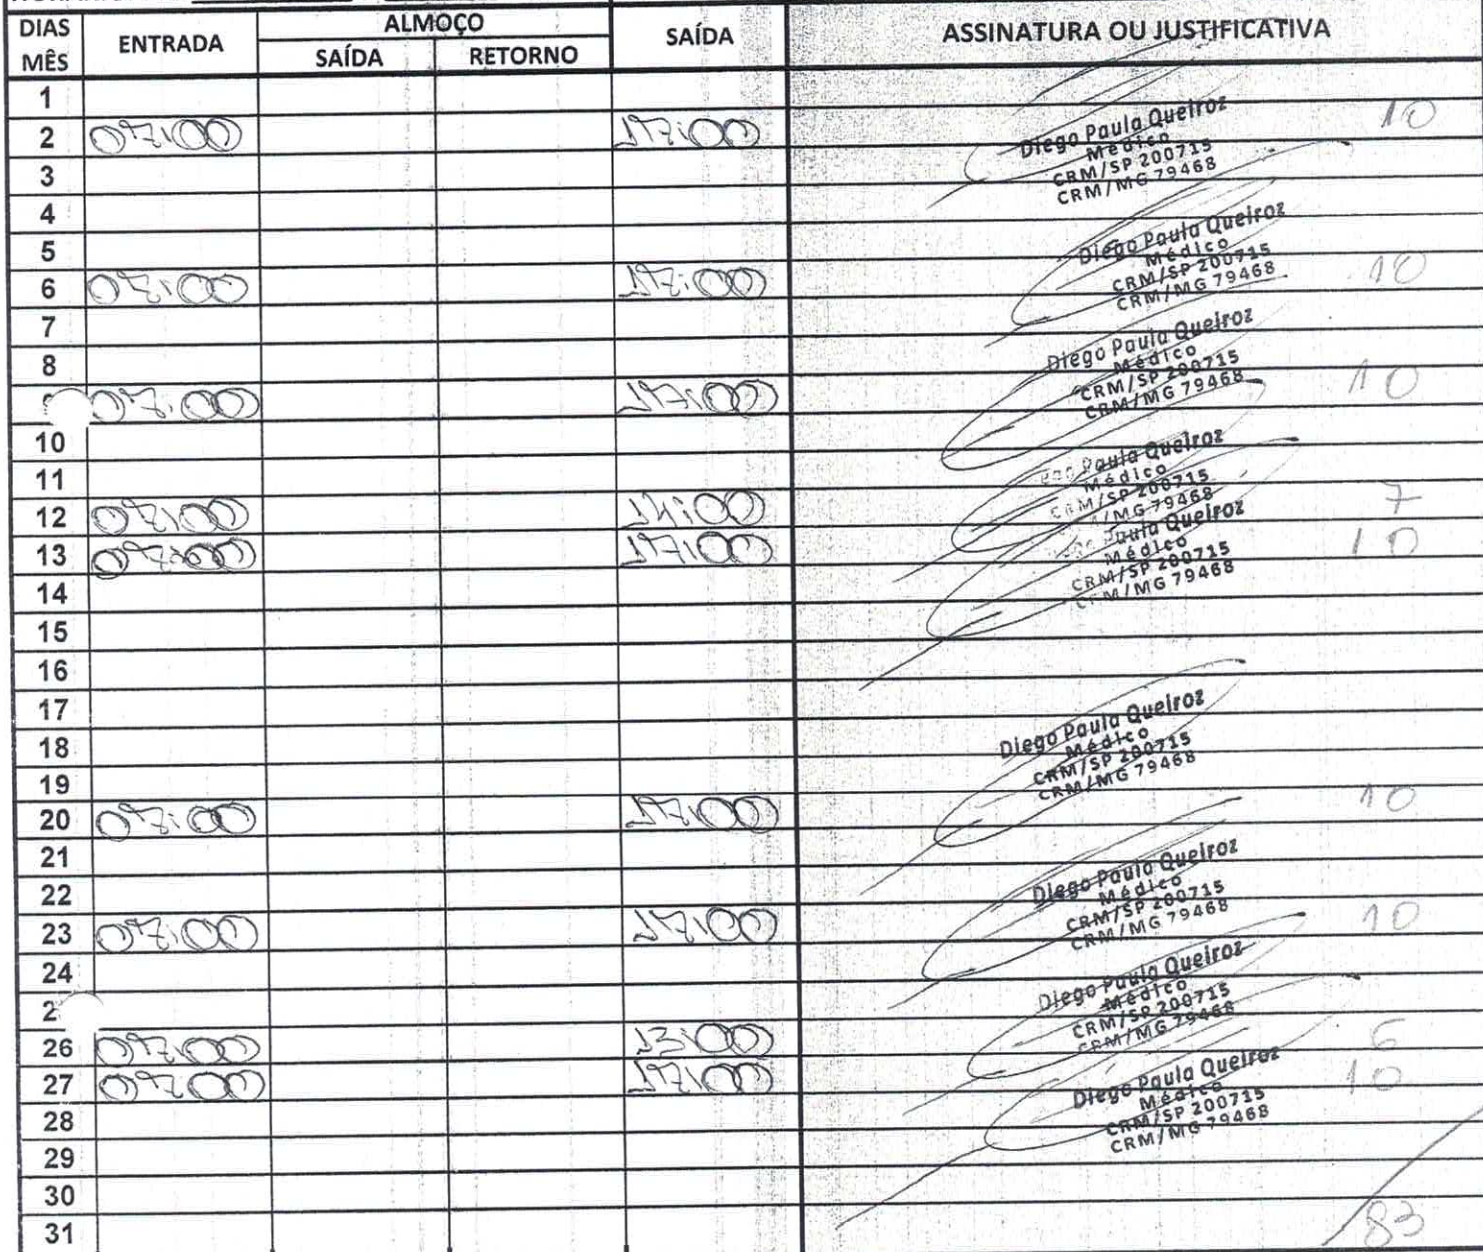 DIAS MÊS ENTRADA ALMOÇO SAÍDA RETORNO SAÍDA ASSINATURA OU JUSTIFICATIVA
1
2 07:00 17:00 Diego Paula Queiroz 10
Médico
CRM/SP 200715
CRM/MG 79468
3
4
5
Diego Paula Queiroz
Médico
CRM/SP 200715
CRM/MG 79468
6 07:00 17:00 10
7
8
Diego Paula Queiroz
Médico
CRM/SP 200715
CRM/MG 79468
07:00 17:00 10
10
11
Paula Queiroz
Médico
CRM/SP 200715
/MG 79468
12 07:00 14:00 7
13 07:00 17:00 10
Paula Queiroz
Médico
CRM/SP 200715
CRM/MG 79468
14
15
16
17
18
Diego Paula Queiroz
Médico
CRM/SP 200715
CRM/MG 79468
19
20 07:00 17:00 10
21
22
Diego Paula Queiroz
Médico
CRM/SP 200715
CRM/MG 79468
23 07:00 17:00 10
24
2
Diego Paula Queiroz
Médico
CRM/SP 200715
CRM/MG 79468
26 07:00 13:00 6
27 07:00 17:00 10
Diego Paula Queiroz
Médico
CRM/SP 200715
CRM/MG 79468
28
29
30
31 83